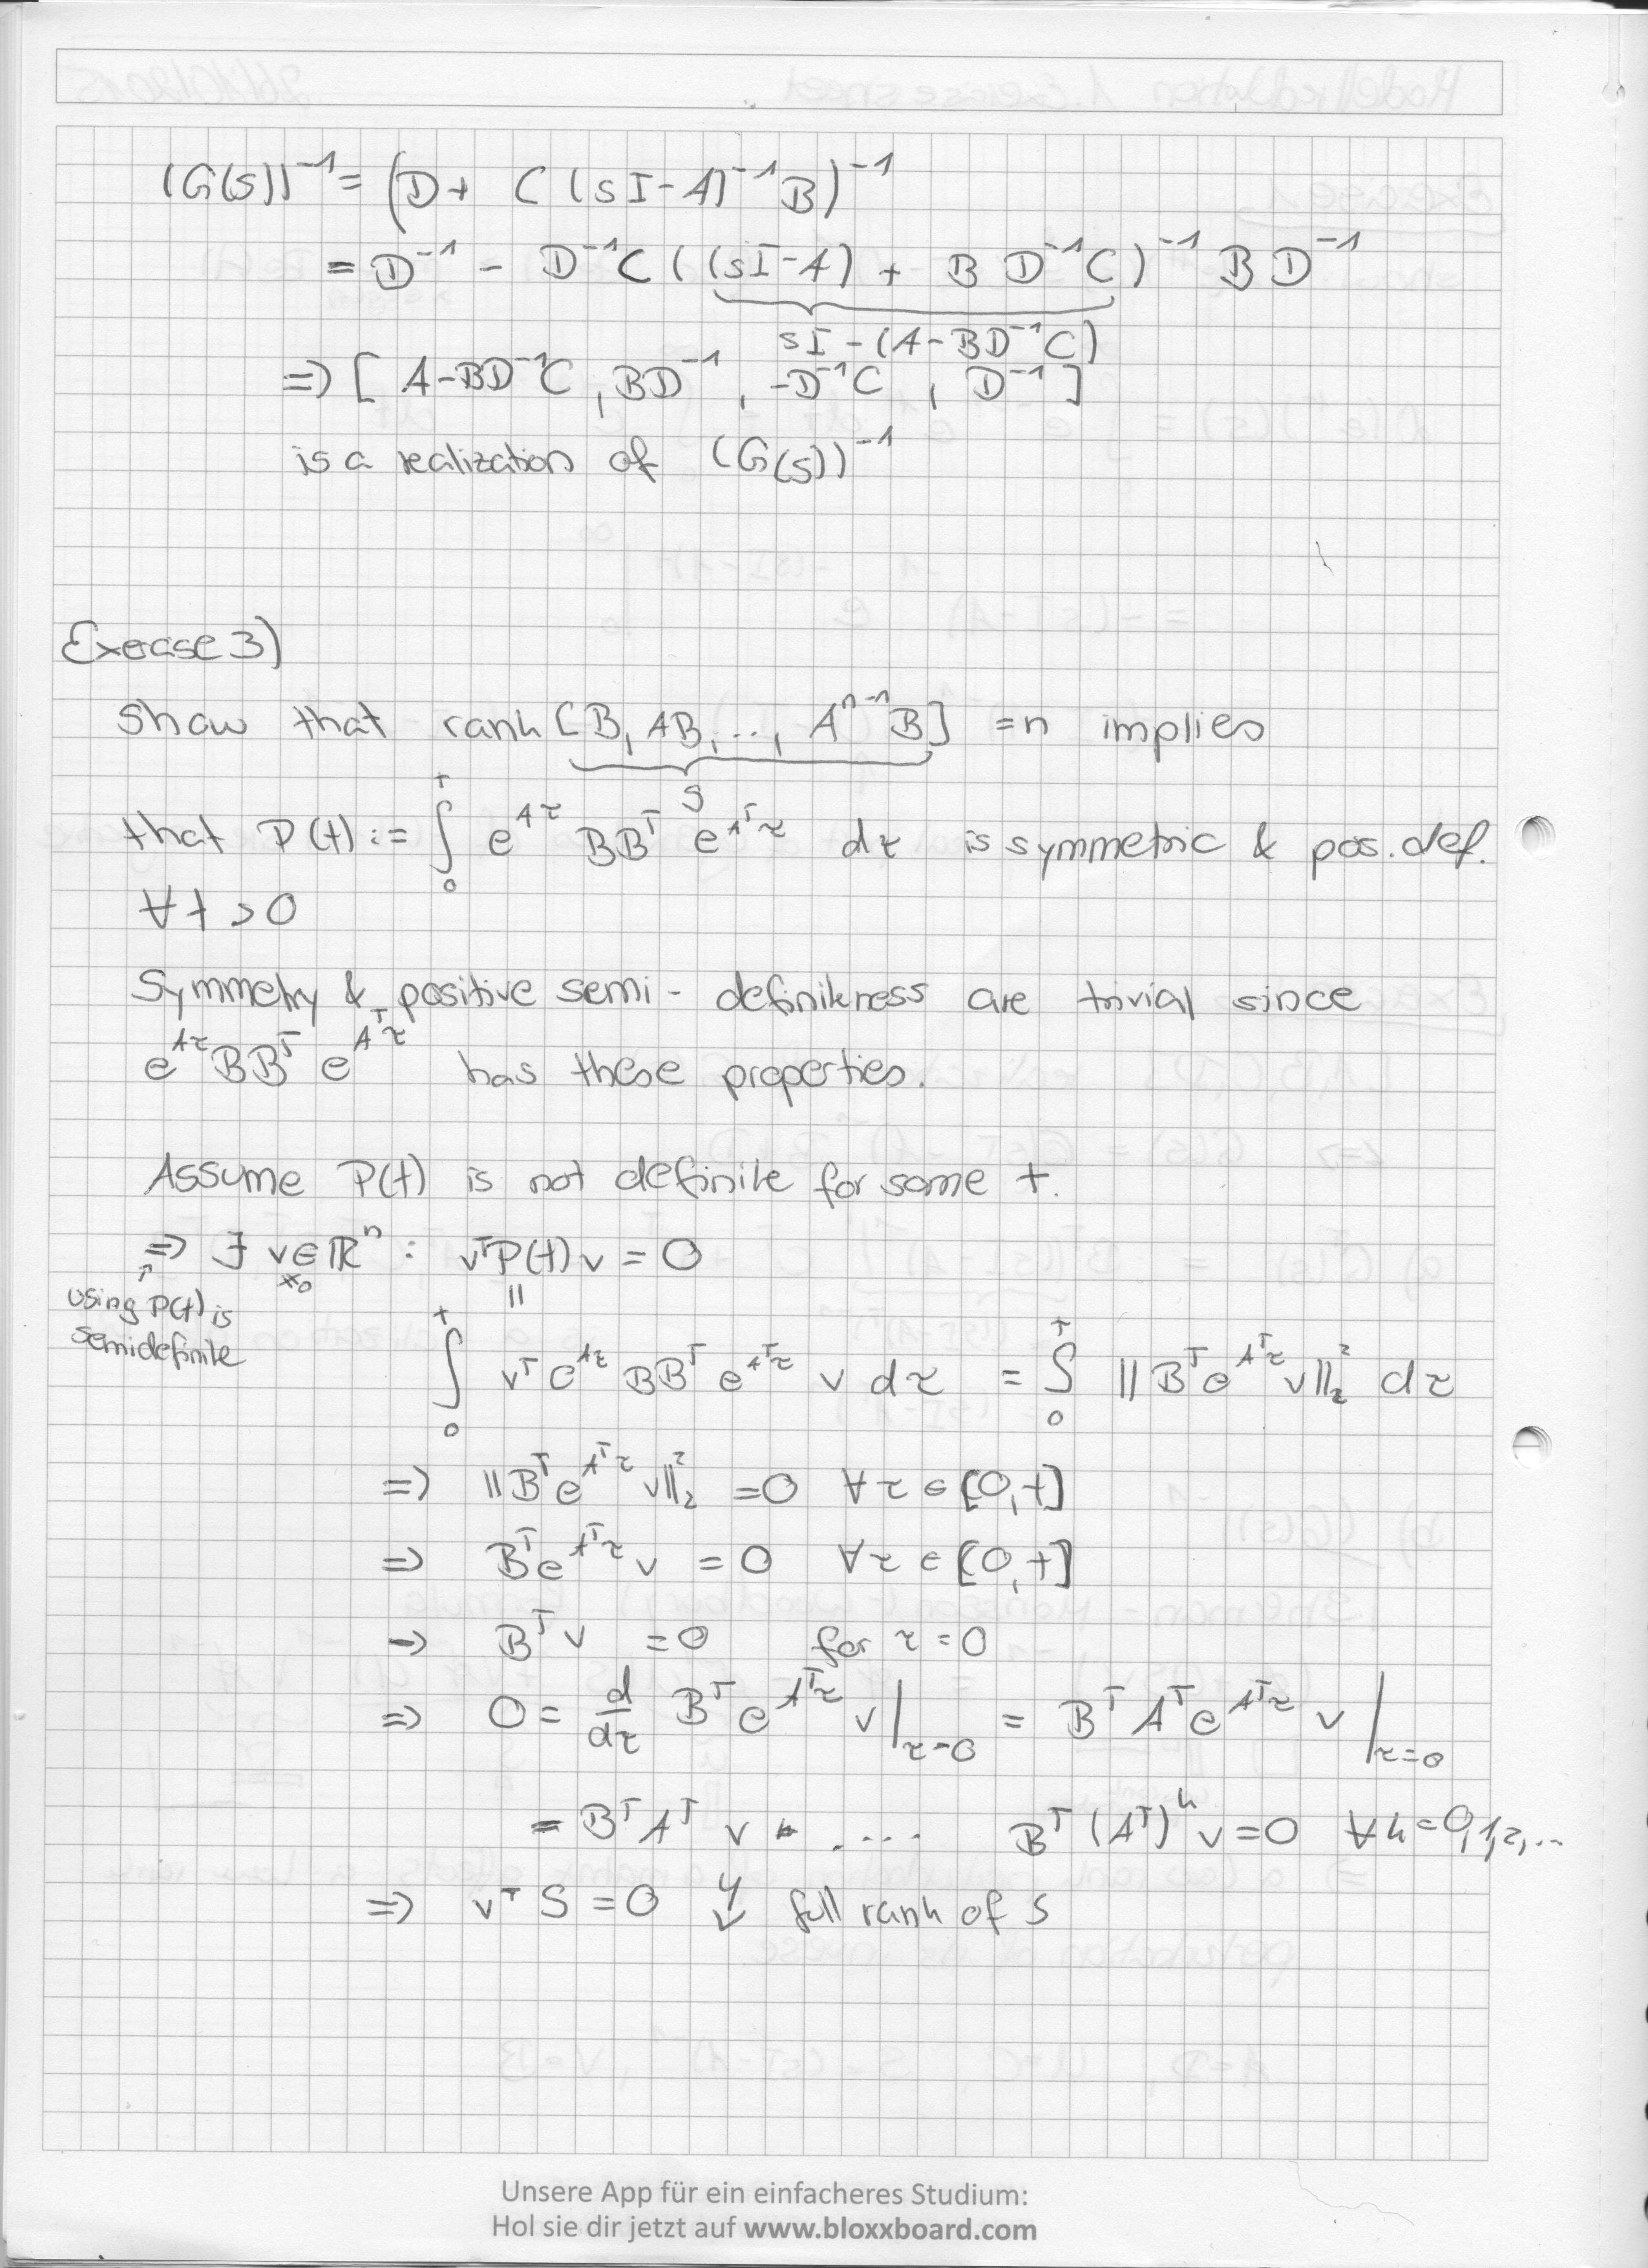 (G(s))^{-1} = (D + C (sI-A)^{-1} B)^{-1}
= D^{-1} - D^{-1}C ((sI-A) + B D^{-1}C)^{-1} B D^{-1}
sI-(A-BD^{-1}C)
=> [ A-BD^{-1}C, BD^{-1}, -D^{-1}C, D^{-1} ]
is a realization of (G(s))^{-1}
Execise 3)
Show that rank [B, AB, ..., A^{n-1}B] = n implies
S
that P(t) := ∫_0^t e^{Aτ} BB^T e^{A^Tτ} dτ is symmetric & pos. def.
∀ t > 0
Symmetry & positive semi-definiteness are trivial since
e^{Aτ}BB^T e^{A^Tτ} has these properties.
Assume P(t) is not definite for some t.
=> ∃ v ∈ ℝ^n : v^T P(t) v = 0
≠0
↑ using P(t) is
semidefinite
||
∫_0^t v^T e^{Aτ} BB^T e^{A^Tτ} v dτ = ∫_0^t ||B^T e^{A^Tτ} v||_2^2 dτ
=> ||B^T e^{A^Tτ} v||_2^2 = 0 ∀ τ ∈ [0,t]
=> B^T e^{A^Tτ} v = 0 ∀ τ ∈ [0,t]
=> B^T v = 0 for τ = 0
=> 0 = d/dτ B^T e^{A^Tτ} v |_{τ=0} = B^T A^T e^{A^Tτ} v |_{τ=0}
= B^T A^T v .... B^T (A^T)^k v = 0 ∀ k = 0,1,2,...
=> v^T S = 0 ↯ full rank of S
Unsere App für ein einfacheres Studium:
Hol sie dir jetzt auf www.bloxxboard.com